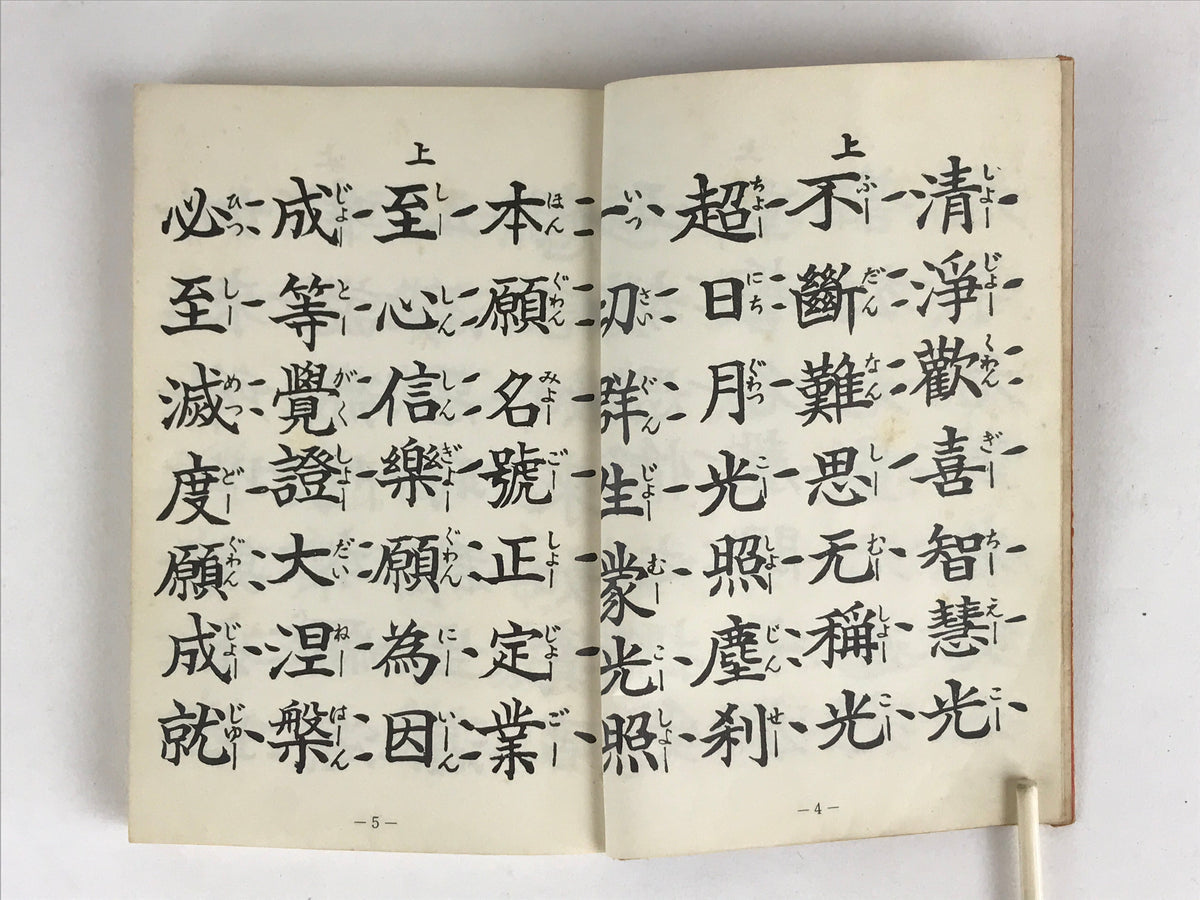 清淨歡喜智慧光
上
不斷難思无稱光
超日月光照塵刹
一切群生蒙光照
—4—
本願名號正定業
上
至心信樂願為因
成等覺證大涅槃
必至滅度願成就
—5—